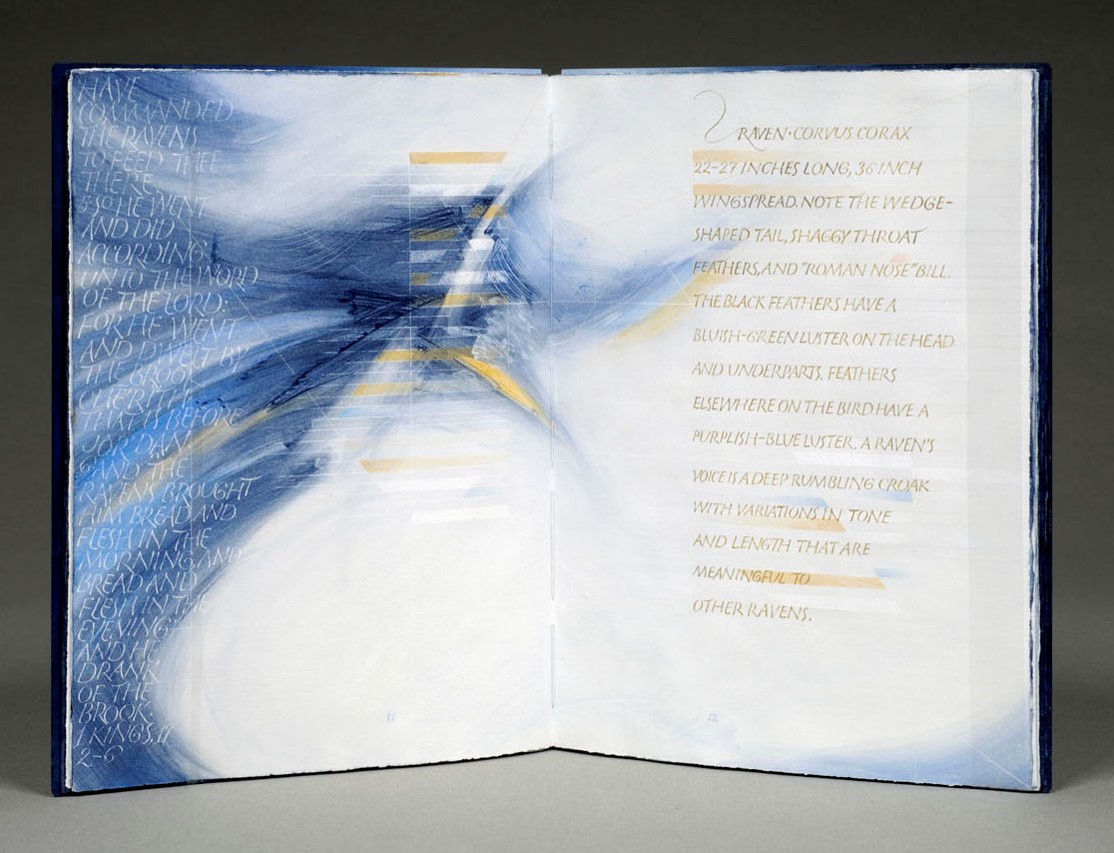 HAVE
COMMANDED
THE RAVENS
TO FEED THEE
THERE.
5 SO HE WENT
AND DID
ACCORDING
UNTO THE WORD
OF THE LORD:
FOR HE WENT
AND DWELT BY
THE BROOK
CHERITH,
THAT IS BEFORE
JORDAN.
6 AND THE
RAVENS BROUGHT
HIM BREAD AND
FLESH IN THE
MORNING, AND
BREAD AND
FLESH IN THE
EVENING;
AND HE
DRANK
OF THE
BROOK.
I KINGS, 17
2-6
11
RAVEN·CORVUS CORAX
22-27 INCHES LONG, 36 INCH
WINGSPREAD. NOTE THE WEDGE-
SHAPED TAIL, SHAGGY THROAT
FEATHERS, AND "ROMAN NOSE" BILL.
THE BLACK FEATHERS HAVE A
BLUISH-GREEN LUSTER ON THE HEAD
AND UNDERPARTS. FEATHERS
ELSEWHERE ON THE BIRD HAVE A
PURPLISH-BLUE LUSTER. A RAVEN'S
VOICE IS A DEEP RUMBLING CROAK
WITH VARIATIONS IN TONE
AND LENGTH THAT ARE
MEANINGFUL TO
OTHER RAVENS.
12